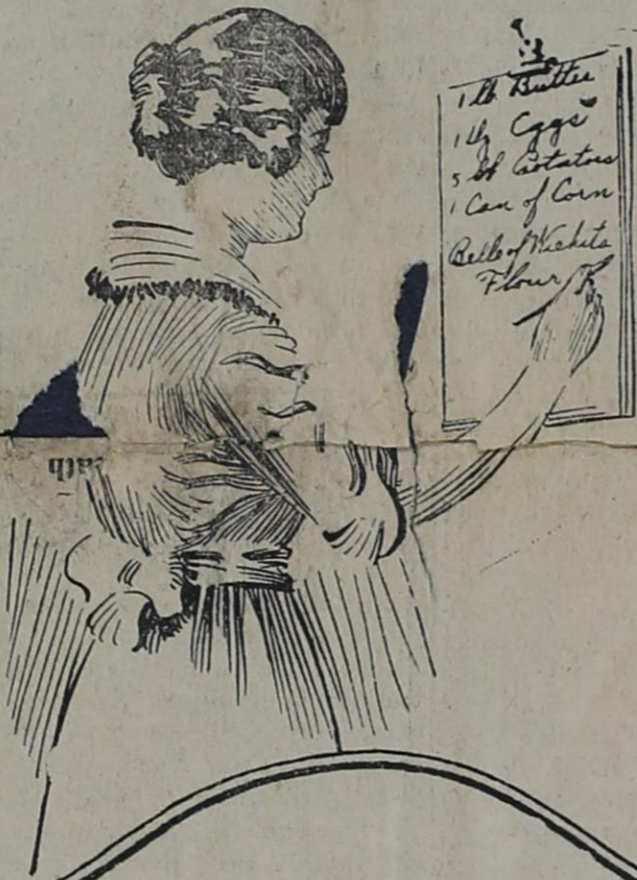 1 lb Butter
1 dz Eggs
5 lb Potatoes
1 Can of Corn
Belle of Wichita
Flour